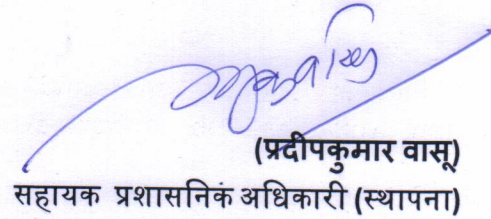 (प्रदीपकुमार वासू)
सहायक प्रशासनिक अधिकारी (स्थापना)